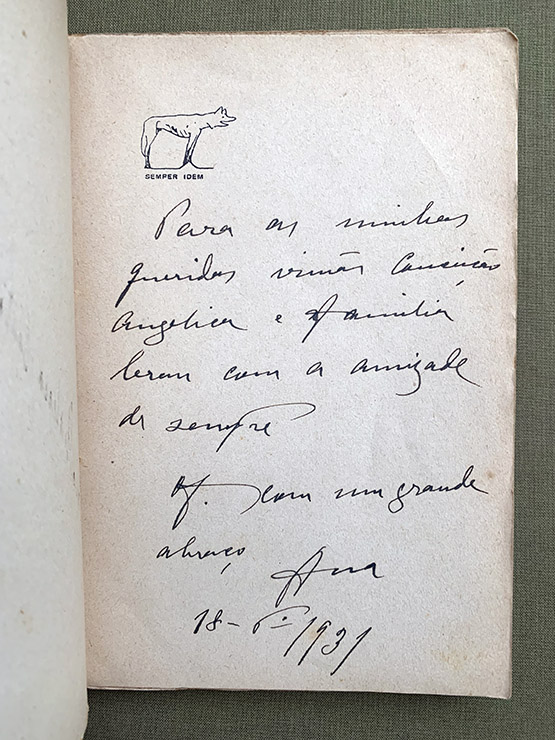 SEMPER IDEM
Para as minhas
queridas irmãs Conceição
Angelica e familia
leram com a amizade
de sempre
Of. com um grande
abraço
Ana
18- 1931